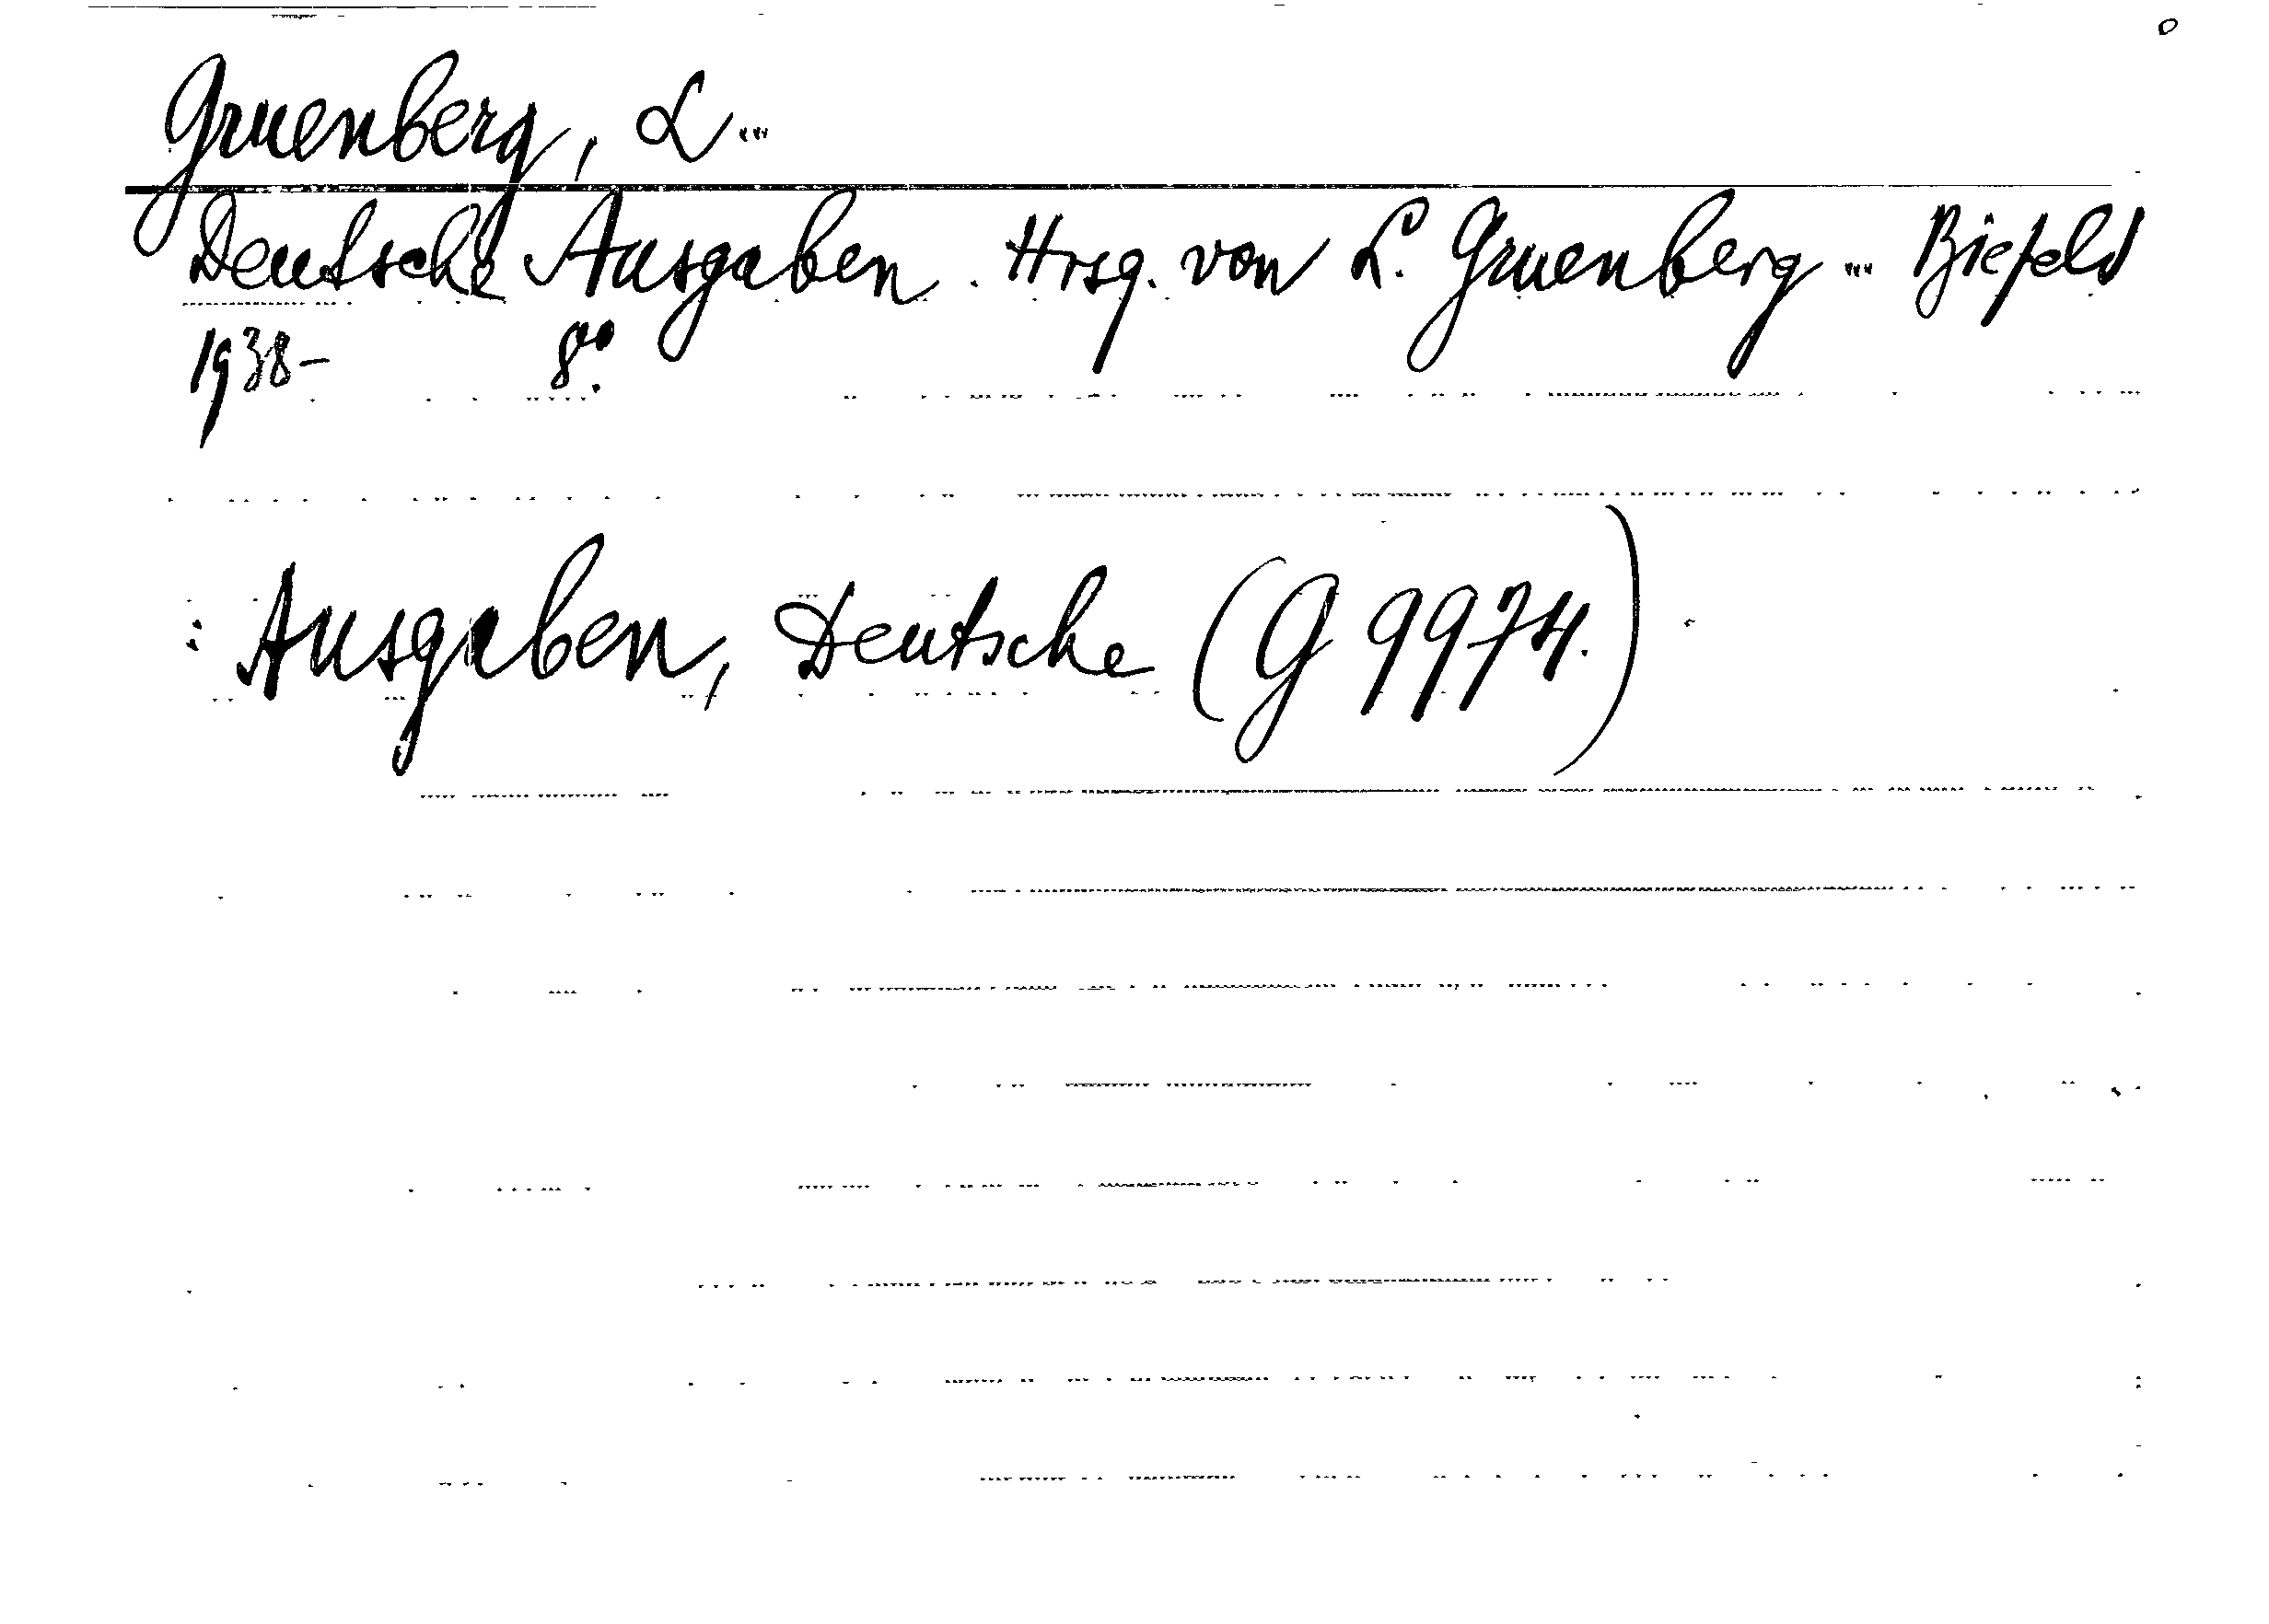 Gruenberg, L...
Deutsche Ausgaben. Hrsg. von L. Gruenberg... Biefeld
1938- 8°.
: Ausgaben, Deutsche (G 9974.)